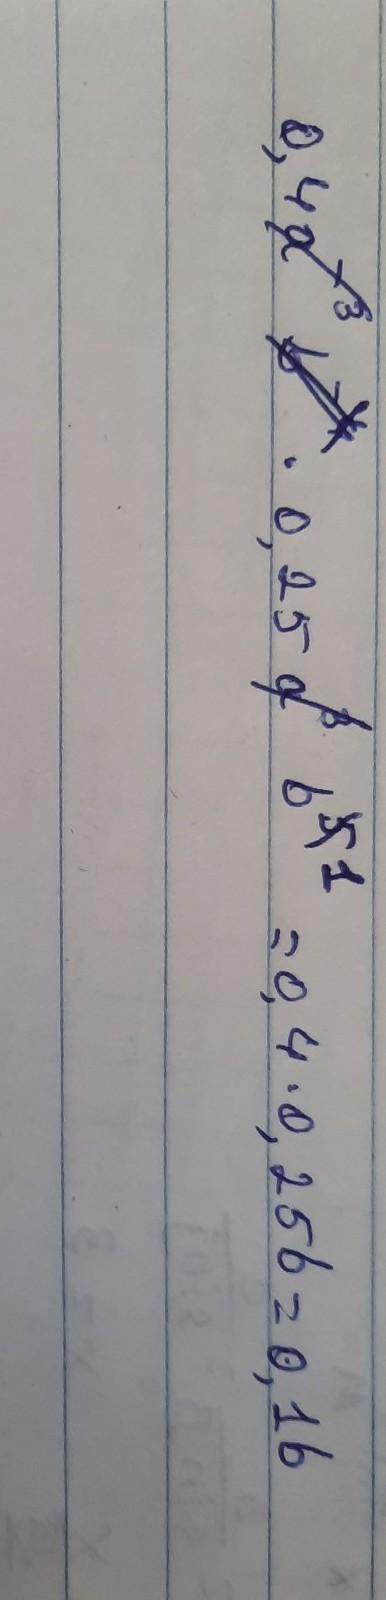 0,4a⁻³ b⁻⁴ · 0,25a³ b⁵ ¹ = 0,4 · 0,25b = 0,1b